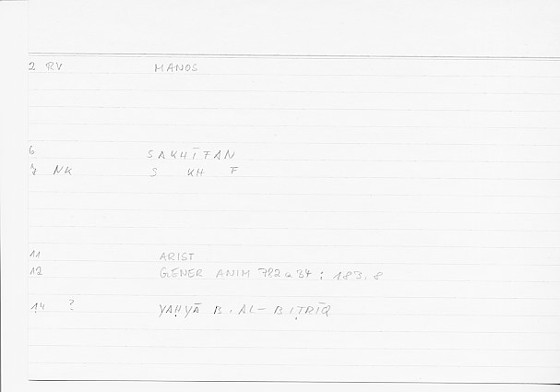 2 RV MANOS
6 SAKHĪFAN
7 NK S KH F
11 ARIST
12 GENER ANIM 782a34 : 183.8
14 ? YAḤYĀ B. AL-BIṬRĪQ